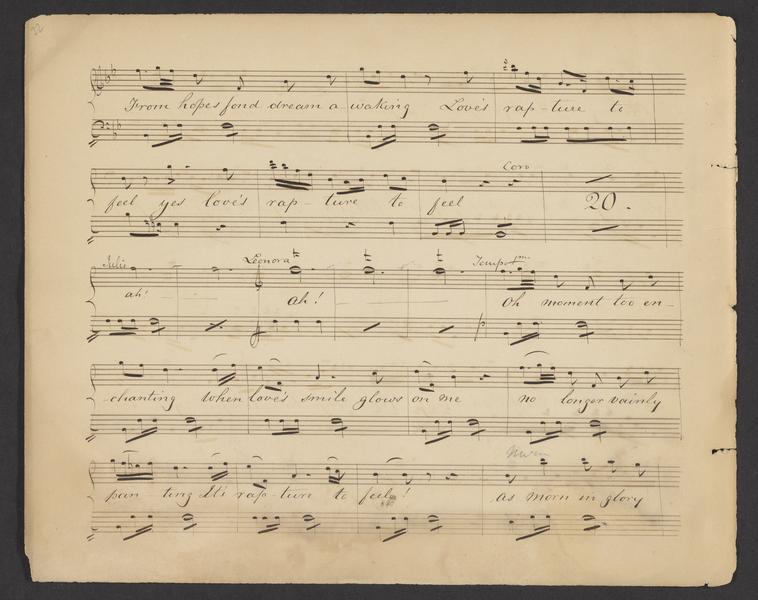 32
From hopes fond dream a waking Love's rap-ture to
Coro
feel yes love's rap-ture to feel 20.
Julio Leonora Tempo pmo
ah! ah! Oh moment too en-
chanting When love's smile glows on me no longer vainly
pan ting It's rap-ture to feel! as morn in glory